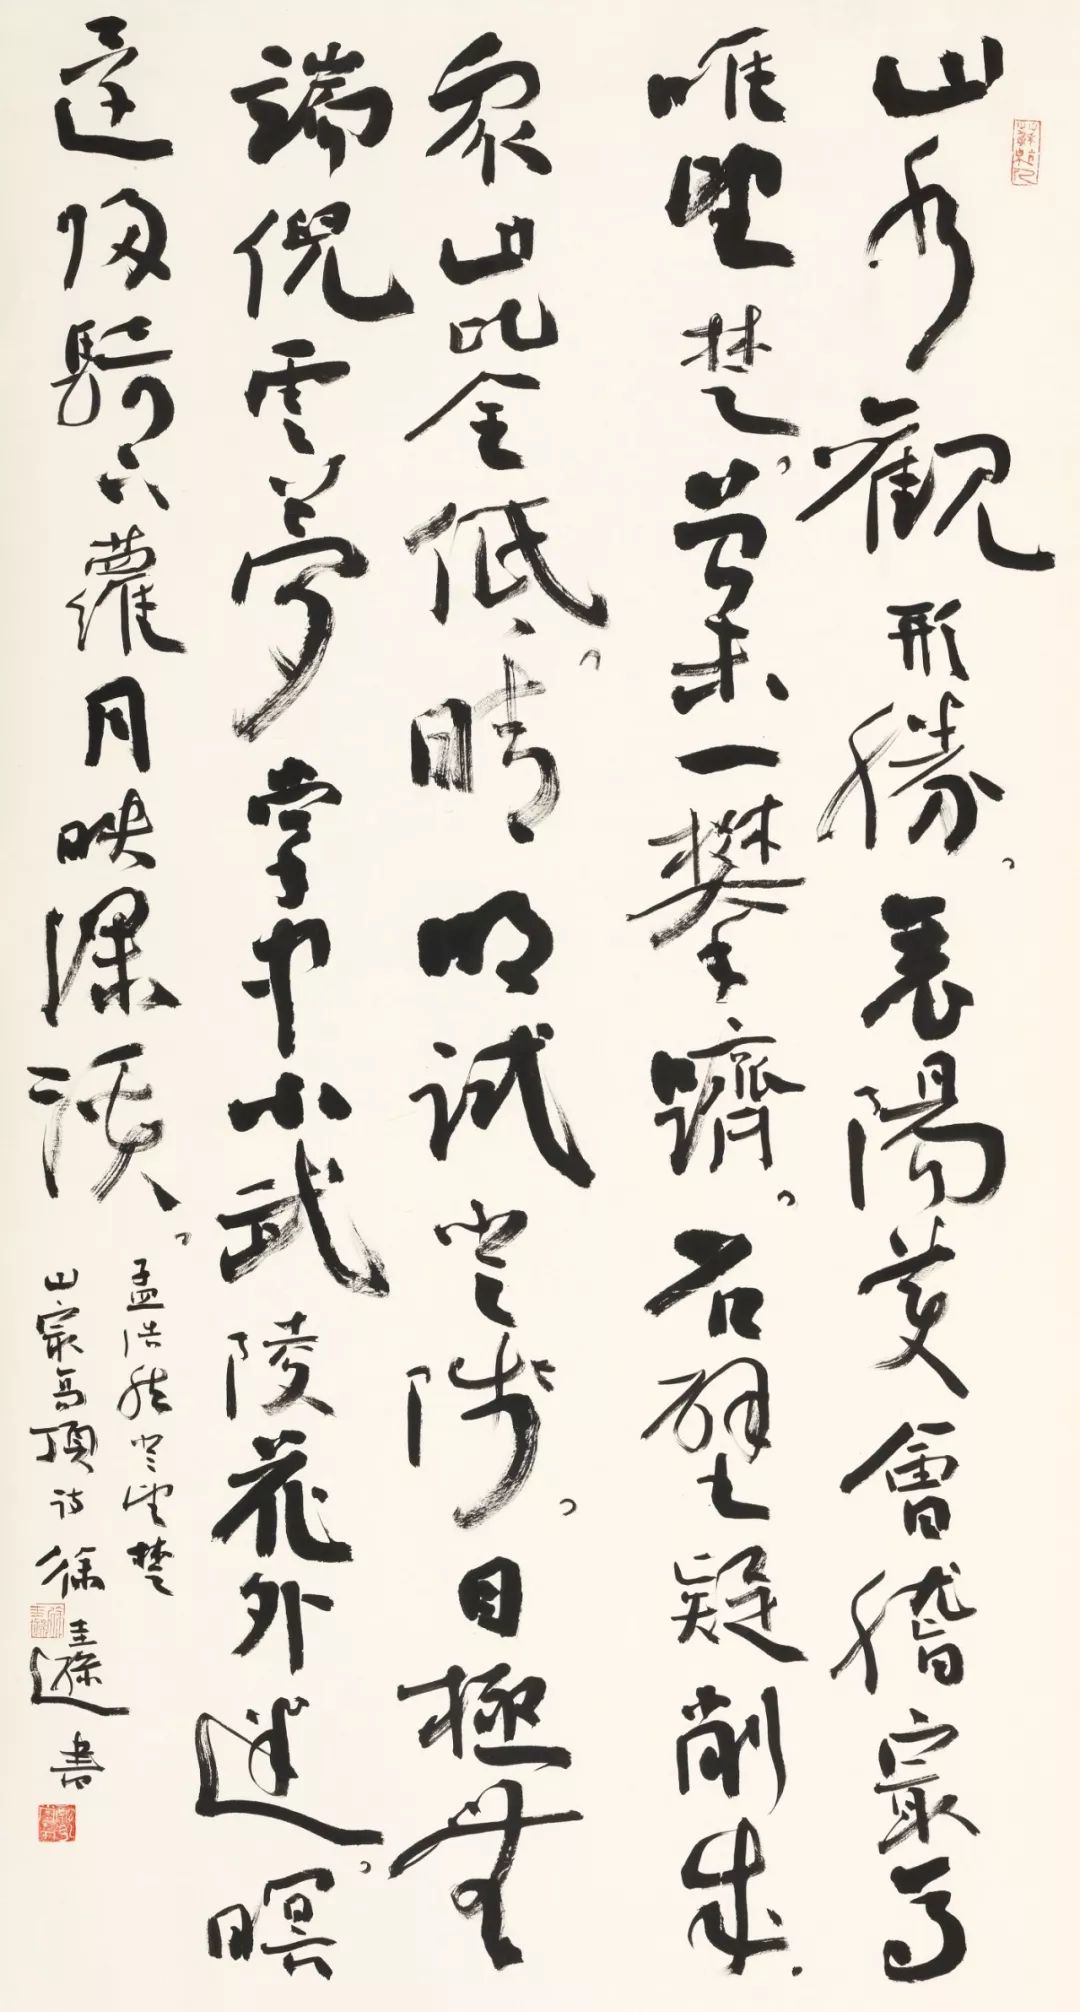 山水觀形勝。襄陽美會稽最高
唯望楚。曾未一攀躋。石壁疑削成.
眾山比全低。晴明試登陟。目極無
端倪雲夢掌中小武陵花外迷。暝
還歸騎下蘿月映深溪。
孟浩然登望楚
山最高頂詩 徐圭遜書